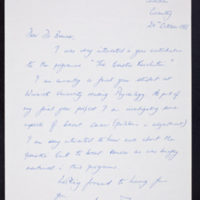 Coventry
26th October 198
Dear Dr
I am very interested in your contribution
to the programme "The Gentle Revolution"
I am currently a final year student at
Warwick University reading Psychology. As part of
my final year project I am investigating some
aspects of breast cancer
I am very interested to know more about the
genetics link to breast cancer as was briefly
mentioned in this programme
Looking forward to hearing from
you